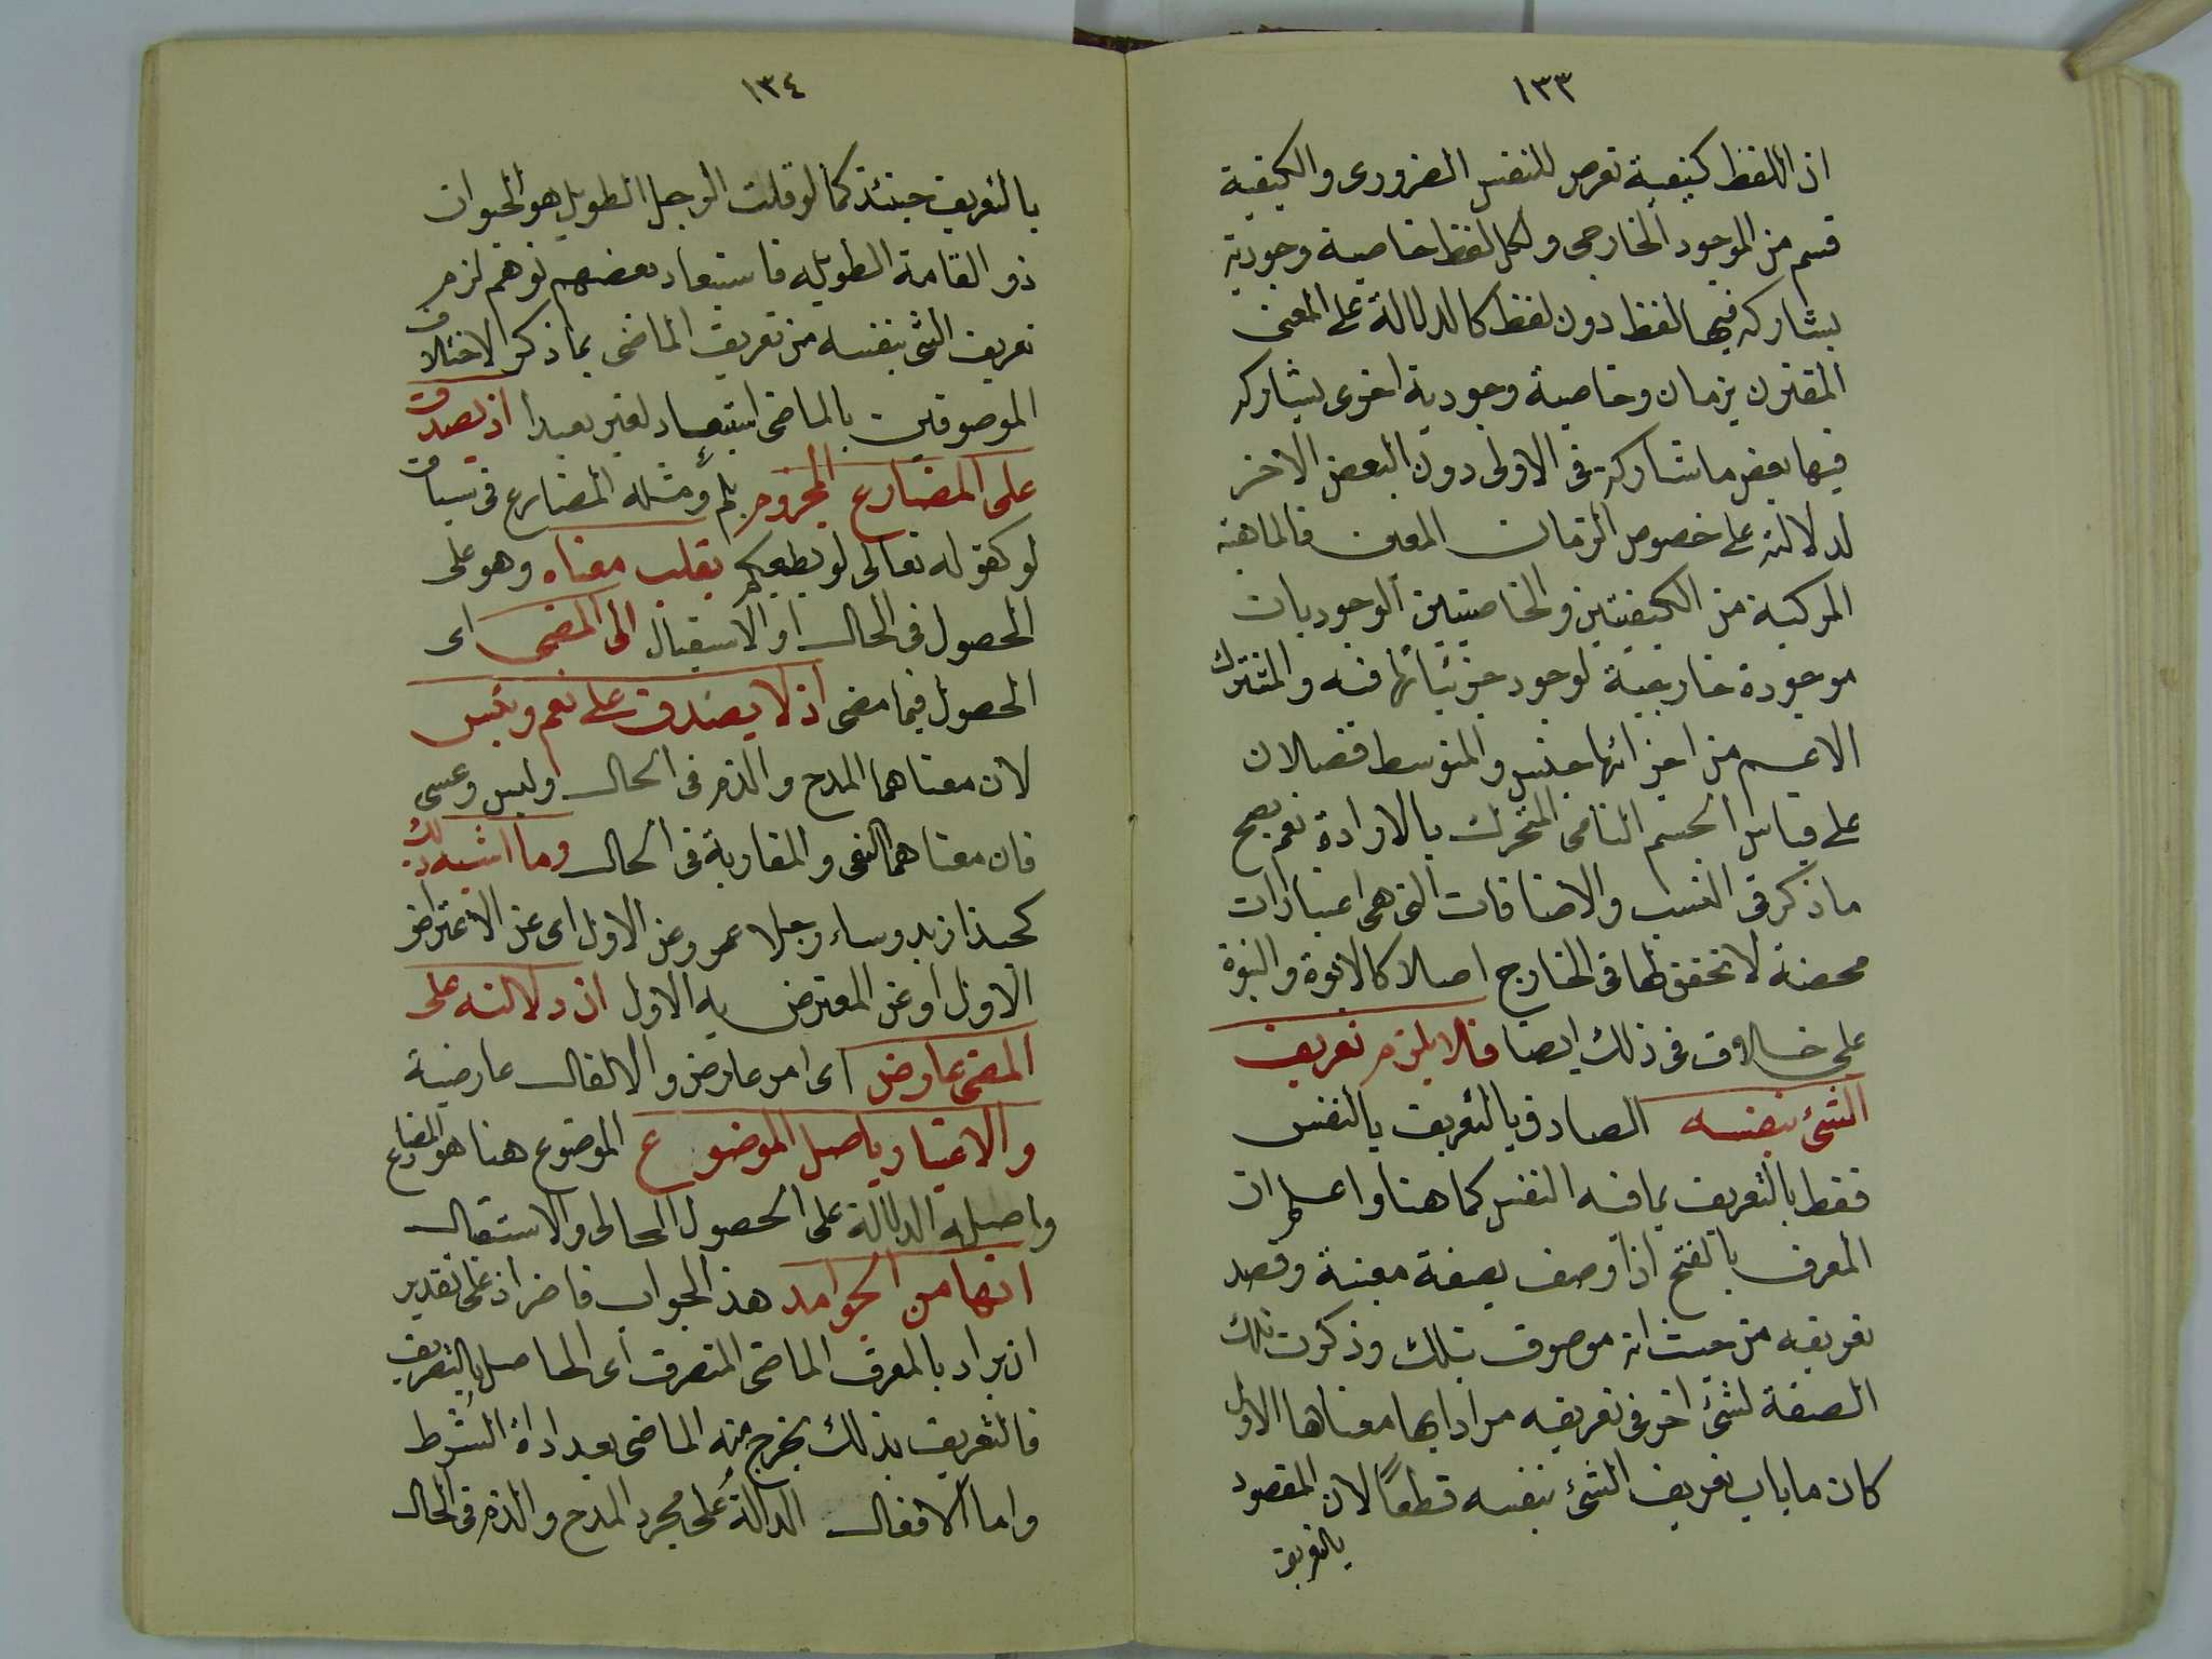 ١٣٣
اذ اللفظ كيفية تعرض للنفس الضرورى والكيفية
قسم من الموجود الخارجى ولكل لفظ خاصية وجودية
يشاركه فيها لفظ دون لفظ كالدلالة على المعنى
المقترن بزمان وخاصية وجودية اخرى يشاركه
فيها بعض ما شاركه فى الاولى دون البعض الاخر
لدلالته على خصوص الزمان المعين فالماهية
المركبة من الكيفيتين والخاصيتين الوجوديات
موجودة خارجية لوجود جزئياتها فيه والمشترك
الاعم من اجزائها جنس والمتوسط فصلان
على قياس الجسم النامى المتحرك بالارادة نعم يصح
ما ذكر فى النسب والاضافات التى هى اعتبارات
محضة لا تحقق لها فى الخارج اصلا كالابوة والبنوة
على خلاف فى ذلك ايضا فلا يلزم تعريف
الشئ بنفسه الصادق بالتعريف بالنفس
فقط بالتعريف بما فيه النفس كما هنا واعلم ان
المعرف بالفتح اذا وصف بصفة معينة وقصد
تعريفه من حيث انه موصوف بتلك وذكرت تلك
الصفة لشئ اخر فى تعريفه مرادا بها معناها الاول
كان ما باب تعريف الشئ بنفسه قطعاً لان المقصود
بالتعريف
١٣٤
بالتعريف حينئذ كما لو قلت الرجل الطويل هو الحيوان
ذو القامة الطويله فاستبعاد بعضهم توهم لزوم
تعريف الشئ بنفسه من تعريف الماضى بما ذكر لاختلاف
الموصوفين بالماضى استبعاد لغير بعيد اذ يصدق
على المضارع المجزوم بلم ومثله المضارع فى سياق
لو كقوله تعالى لو يطيعكم بقلب معناه وهو على
الحصول فى الحال او الاستقبال الى المضى اى
الحصول فيما مضى اذ لا يصدق على نعم وبئس
لان معناهما المدح والذم فى الحال وليس وعسى
فان معناهما النفى والمقاربة فى الحال وما اشبه ذلك
كحبذا زيد وساء رجلا عمرو عن الاول اى عن الاعتراض
الاول او عن المعترض به الاول ان دلالته على
المضى عارض اى امر عارض والالفاظ عارضية
والاعتبار باصل الموضوع الموضوع هنا هو المضارع
واصله الدلالة على الحصول الحالى والاستقبال
انها من الجوامد هذا الجواب قاصر اذ على تقدير
ان يراد بالمعرف الماضى المتصرف اى الحاصل بالتصريف
فالتعريف بذلك يخرج منه الماضى بعد اداة الشرط
واما الافعال الدالة على مجرد المدح والذم فى الحال